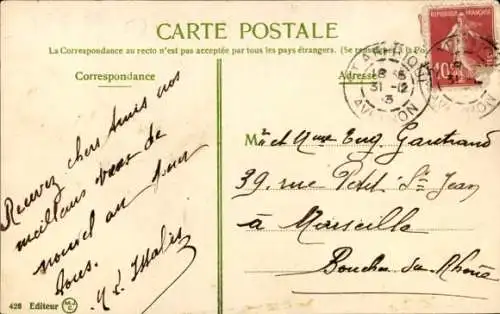 CARTE POSTALE
La Correspondance au recto n'est pas acceptée par tous les pays étrangers. (Se renseigner à la Po
Correspondance
Adresse
RÉPUBLIQUE FRANÇAISE
10
8
31-12
3
AVEYRON
Recevez chers Amis nos
meilleurs vœux de
nouvel an pour
tous.
Mr et Mme Eug Gautrand
39 rue Petit St Jean
à Marseille
Bouches du Rhône
426 Editeur